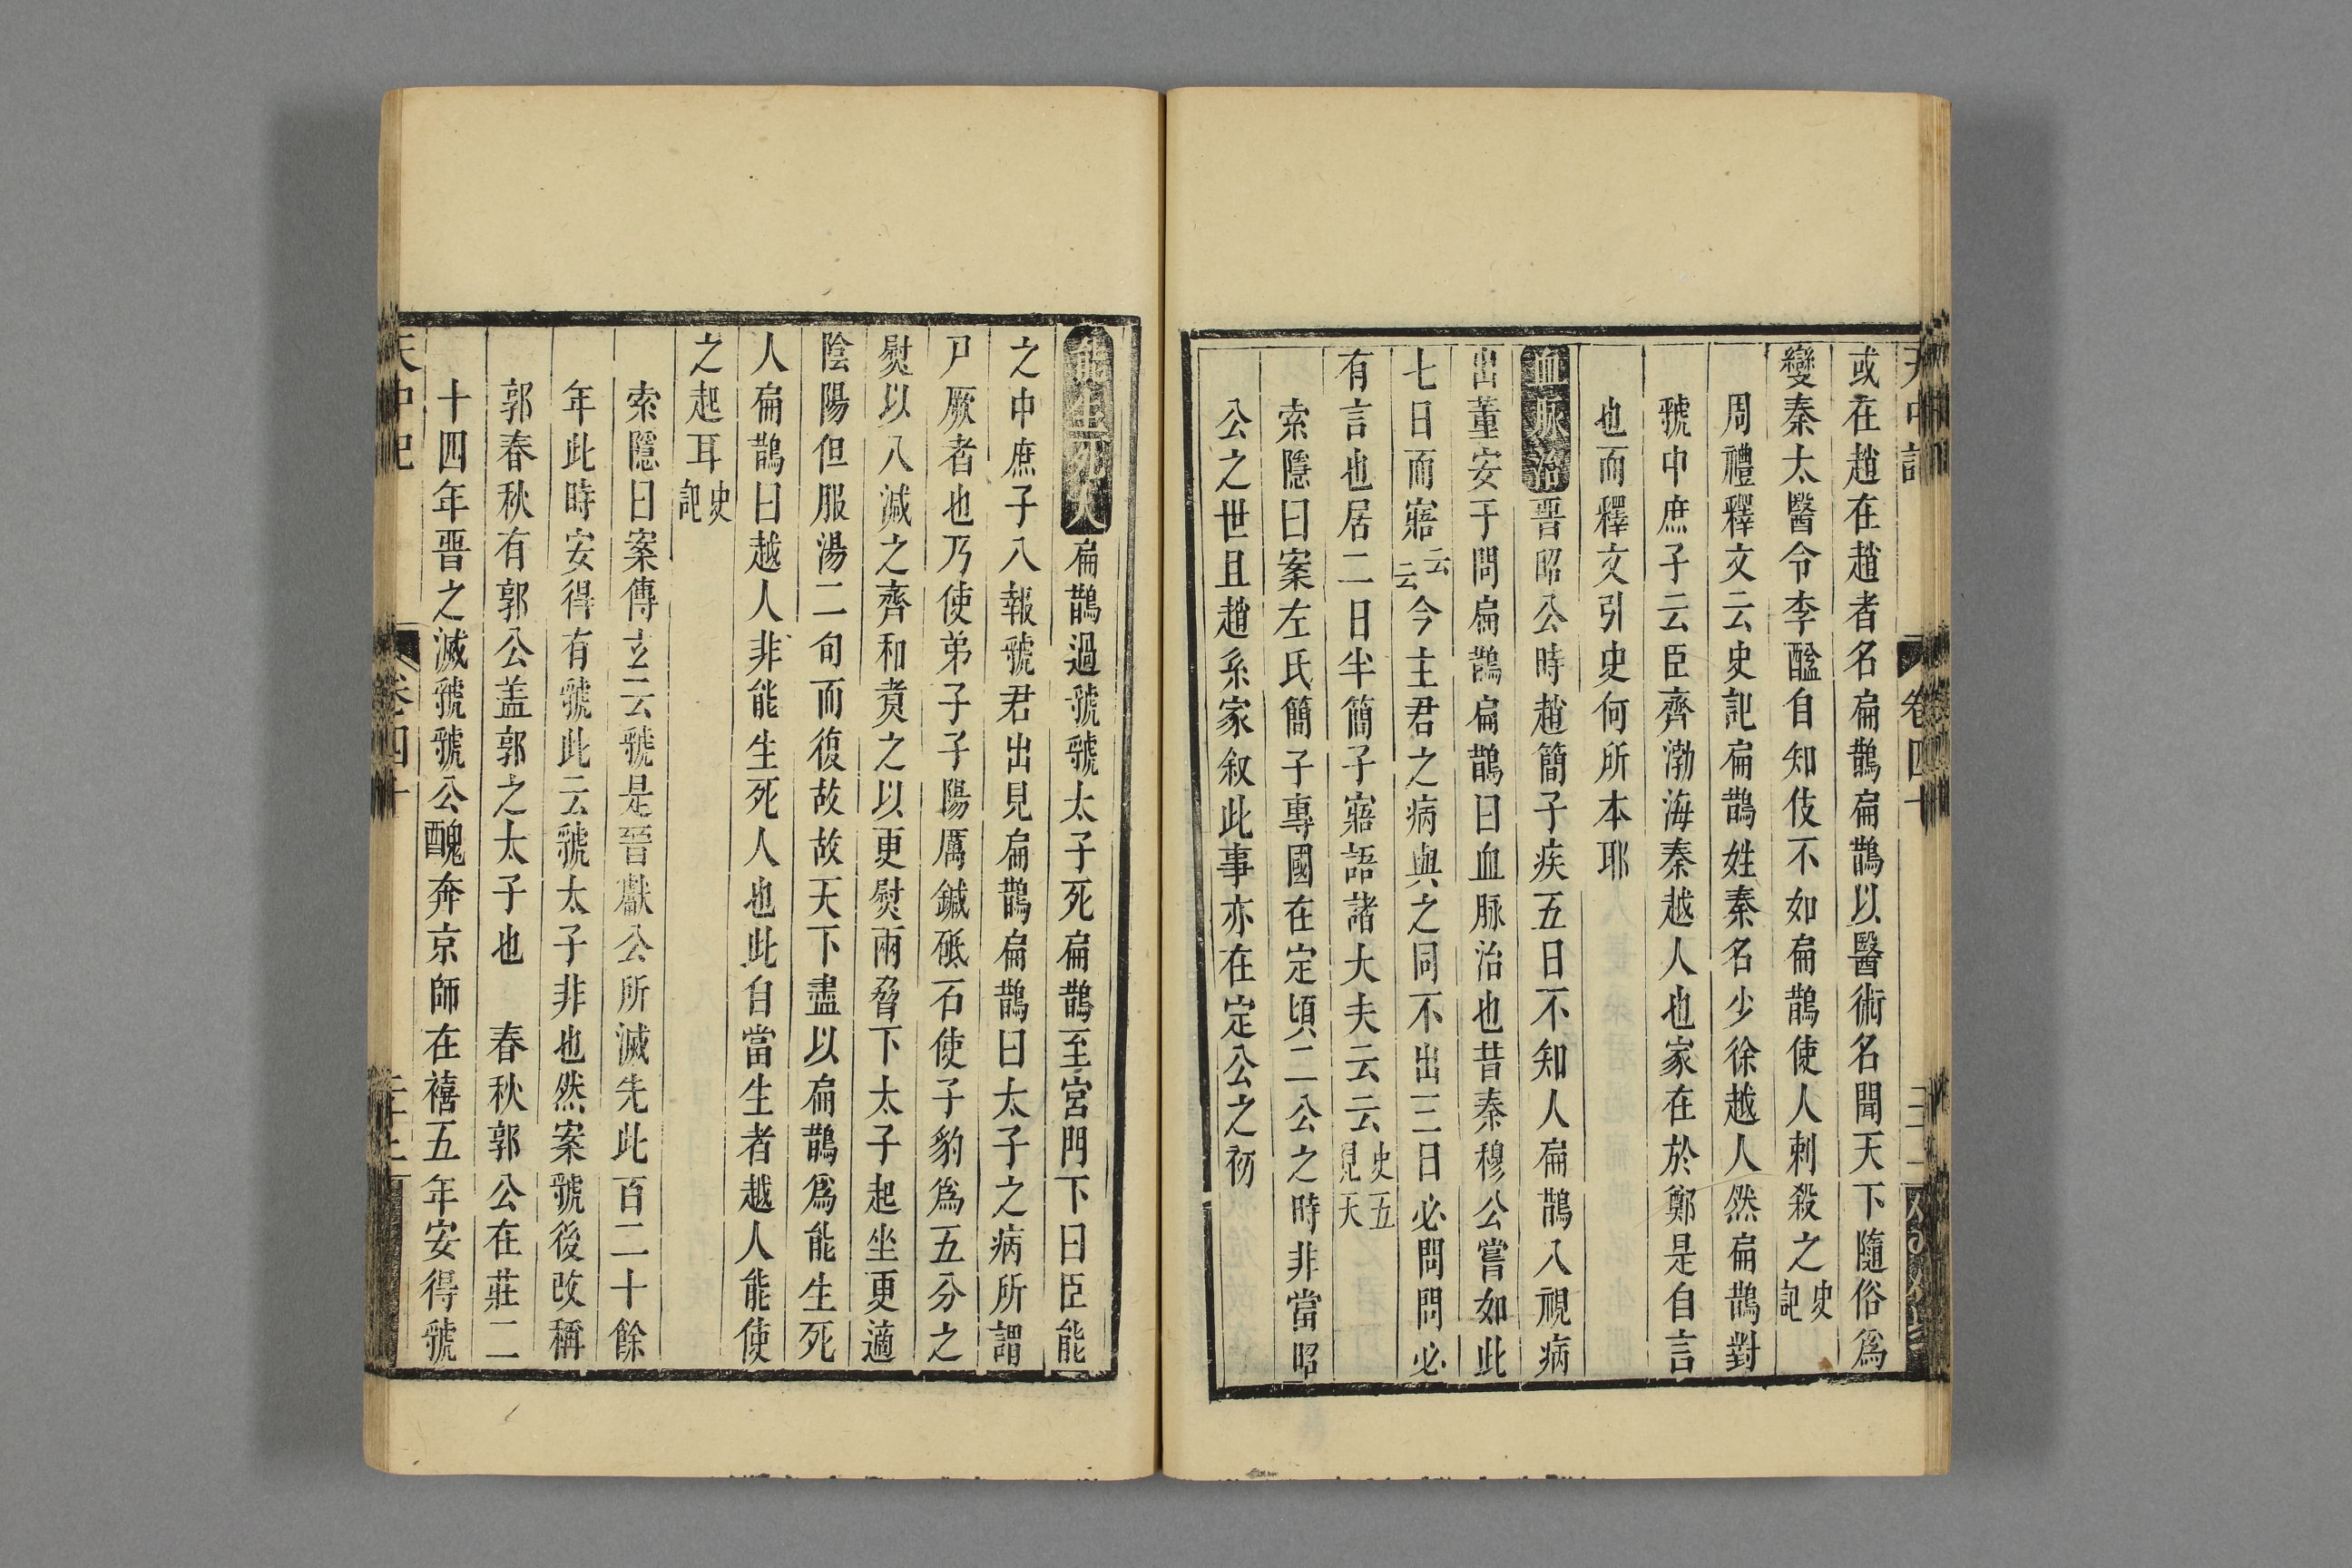 或在趙在趙者名扁鵲扁鵲以醫術名聞天下隨俗爲
變秦太醫令李醯自知伎不如扁鵲使人刺殺之史記
周禮釋文云史記扁鵲姓秦名少徐越人然扁鵲對
虢中庶子云臣齊渤海秦越人也家在於鄭是自言
也而釋文引史何所本耶
血脉治晋昭公時趙簡子疾五日不知人扁鵲入視病
出董安于問扁鵲扁鵲曰血脉治也昔秦穆公嘗如此
七日而寤云云今主君之病與之同不出三日必間間必
有言也居二日半簡子寤語諸大夫云云史五見天
索隱曰案左氏簡子專國在定頃二公之時非當昭
公之世且趙系家叙此事亦在定公之初
能生死人扁鵲過虢虢太子死扁鵲至宮門下曰臣能
之中庶子入報虢君出見扁鵲扁鵲曰太子之病所謂
尸厥者也乃使弟子子陽厲鍼砥石使子豹爲五分之
熨以八減之齊和煑之以更熨兩脅下太子起坐更適
陰陽但服湯二旬而復故故天下盡以扁鵲爲能生死
人扁鵲曰越人非能生死人也此自當生者越人能使
之起耳史記
索隱曰案傳玄云虢是晉獻公所滅先此百二十餘
年此時安得有虢此云虢太子非也然案虢後改稱
郭春秋有郭公盖郭之太子也 春秋郭公在莊二
十四年晋之滅虢虢公醜奔京師在禧五年安得虢
卷四十